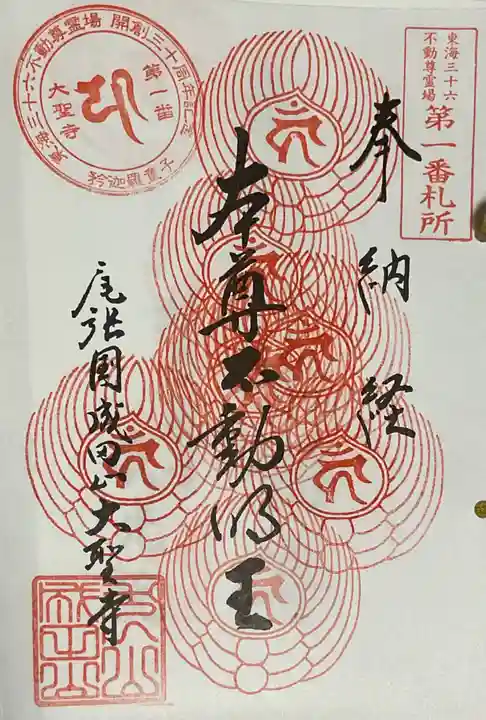 東海三十六
不動尊霊場
第一番札所
奉納経
本尊不動明王
尾張國成田山大聖寺
東海三十六不動尊霊場 開創三十周年記念
第一番
大聖寺
矜迦羅童子